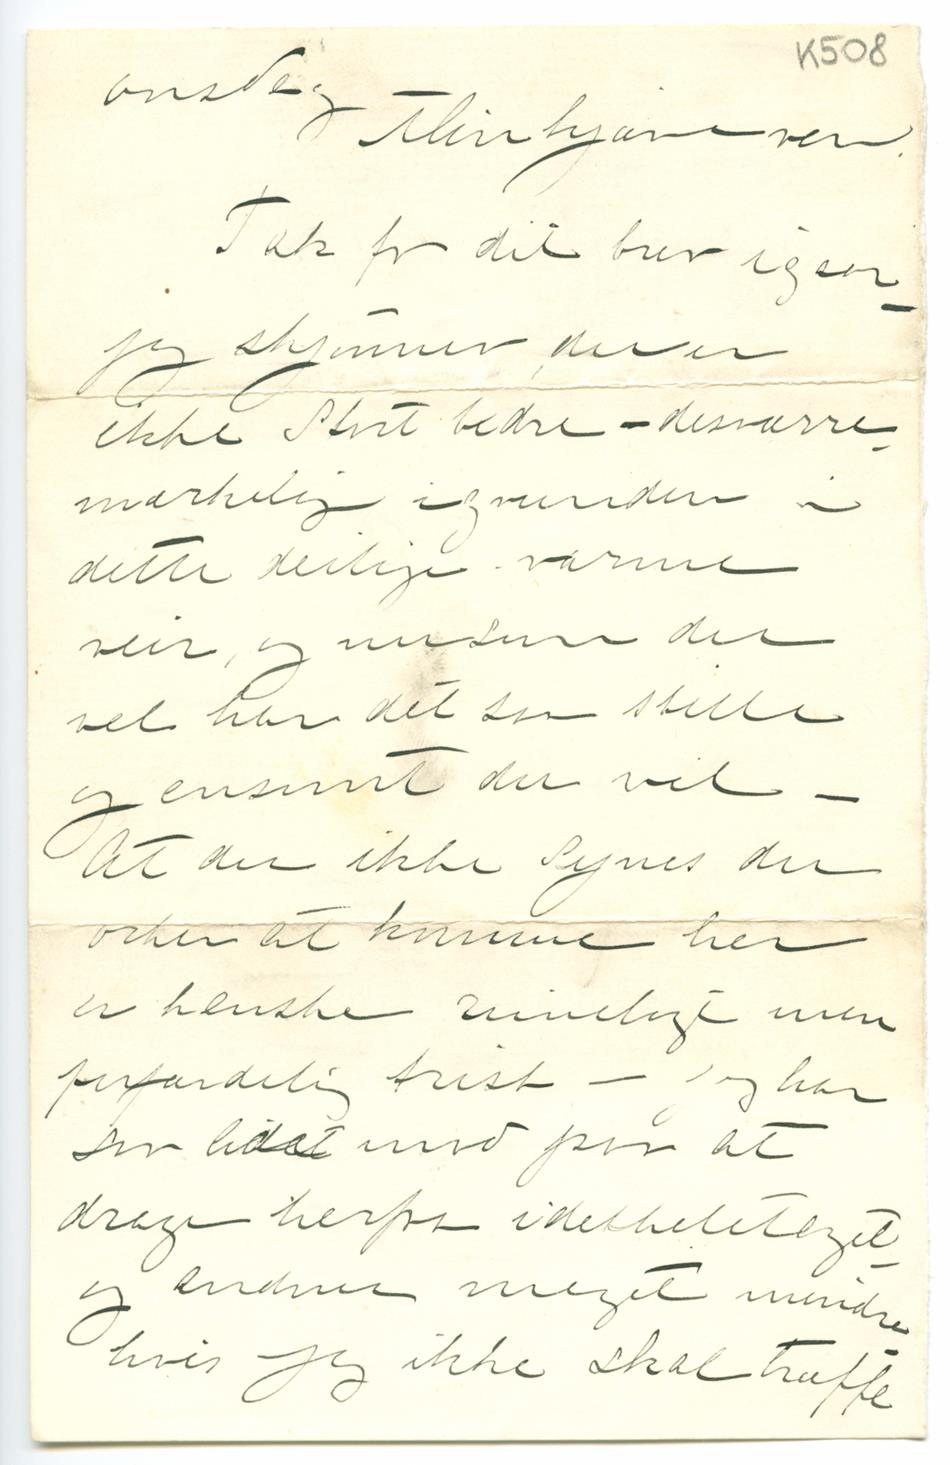 K508
onsdag
Min kjære ven.
Tak for dit brev igaar –
jeg skjønner, du er
ikke Stort bedre – desværre –
mærkelig igrunden i
dette deilige varme
veir, og naar du
vel har det saa stille
og ensomt du vil –
At du ikke Synes du
orker at komme her
er kanske rimeligt men
forfærdelig trist – jeg har
saa lidet mod paa at
drage herfra idethele taget –
og endnu meget mindre –
hvis jeg ikke skal træffe